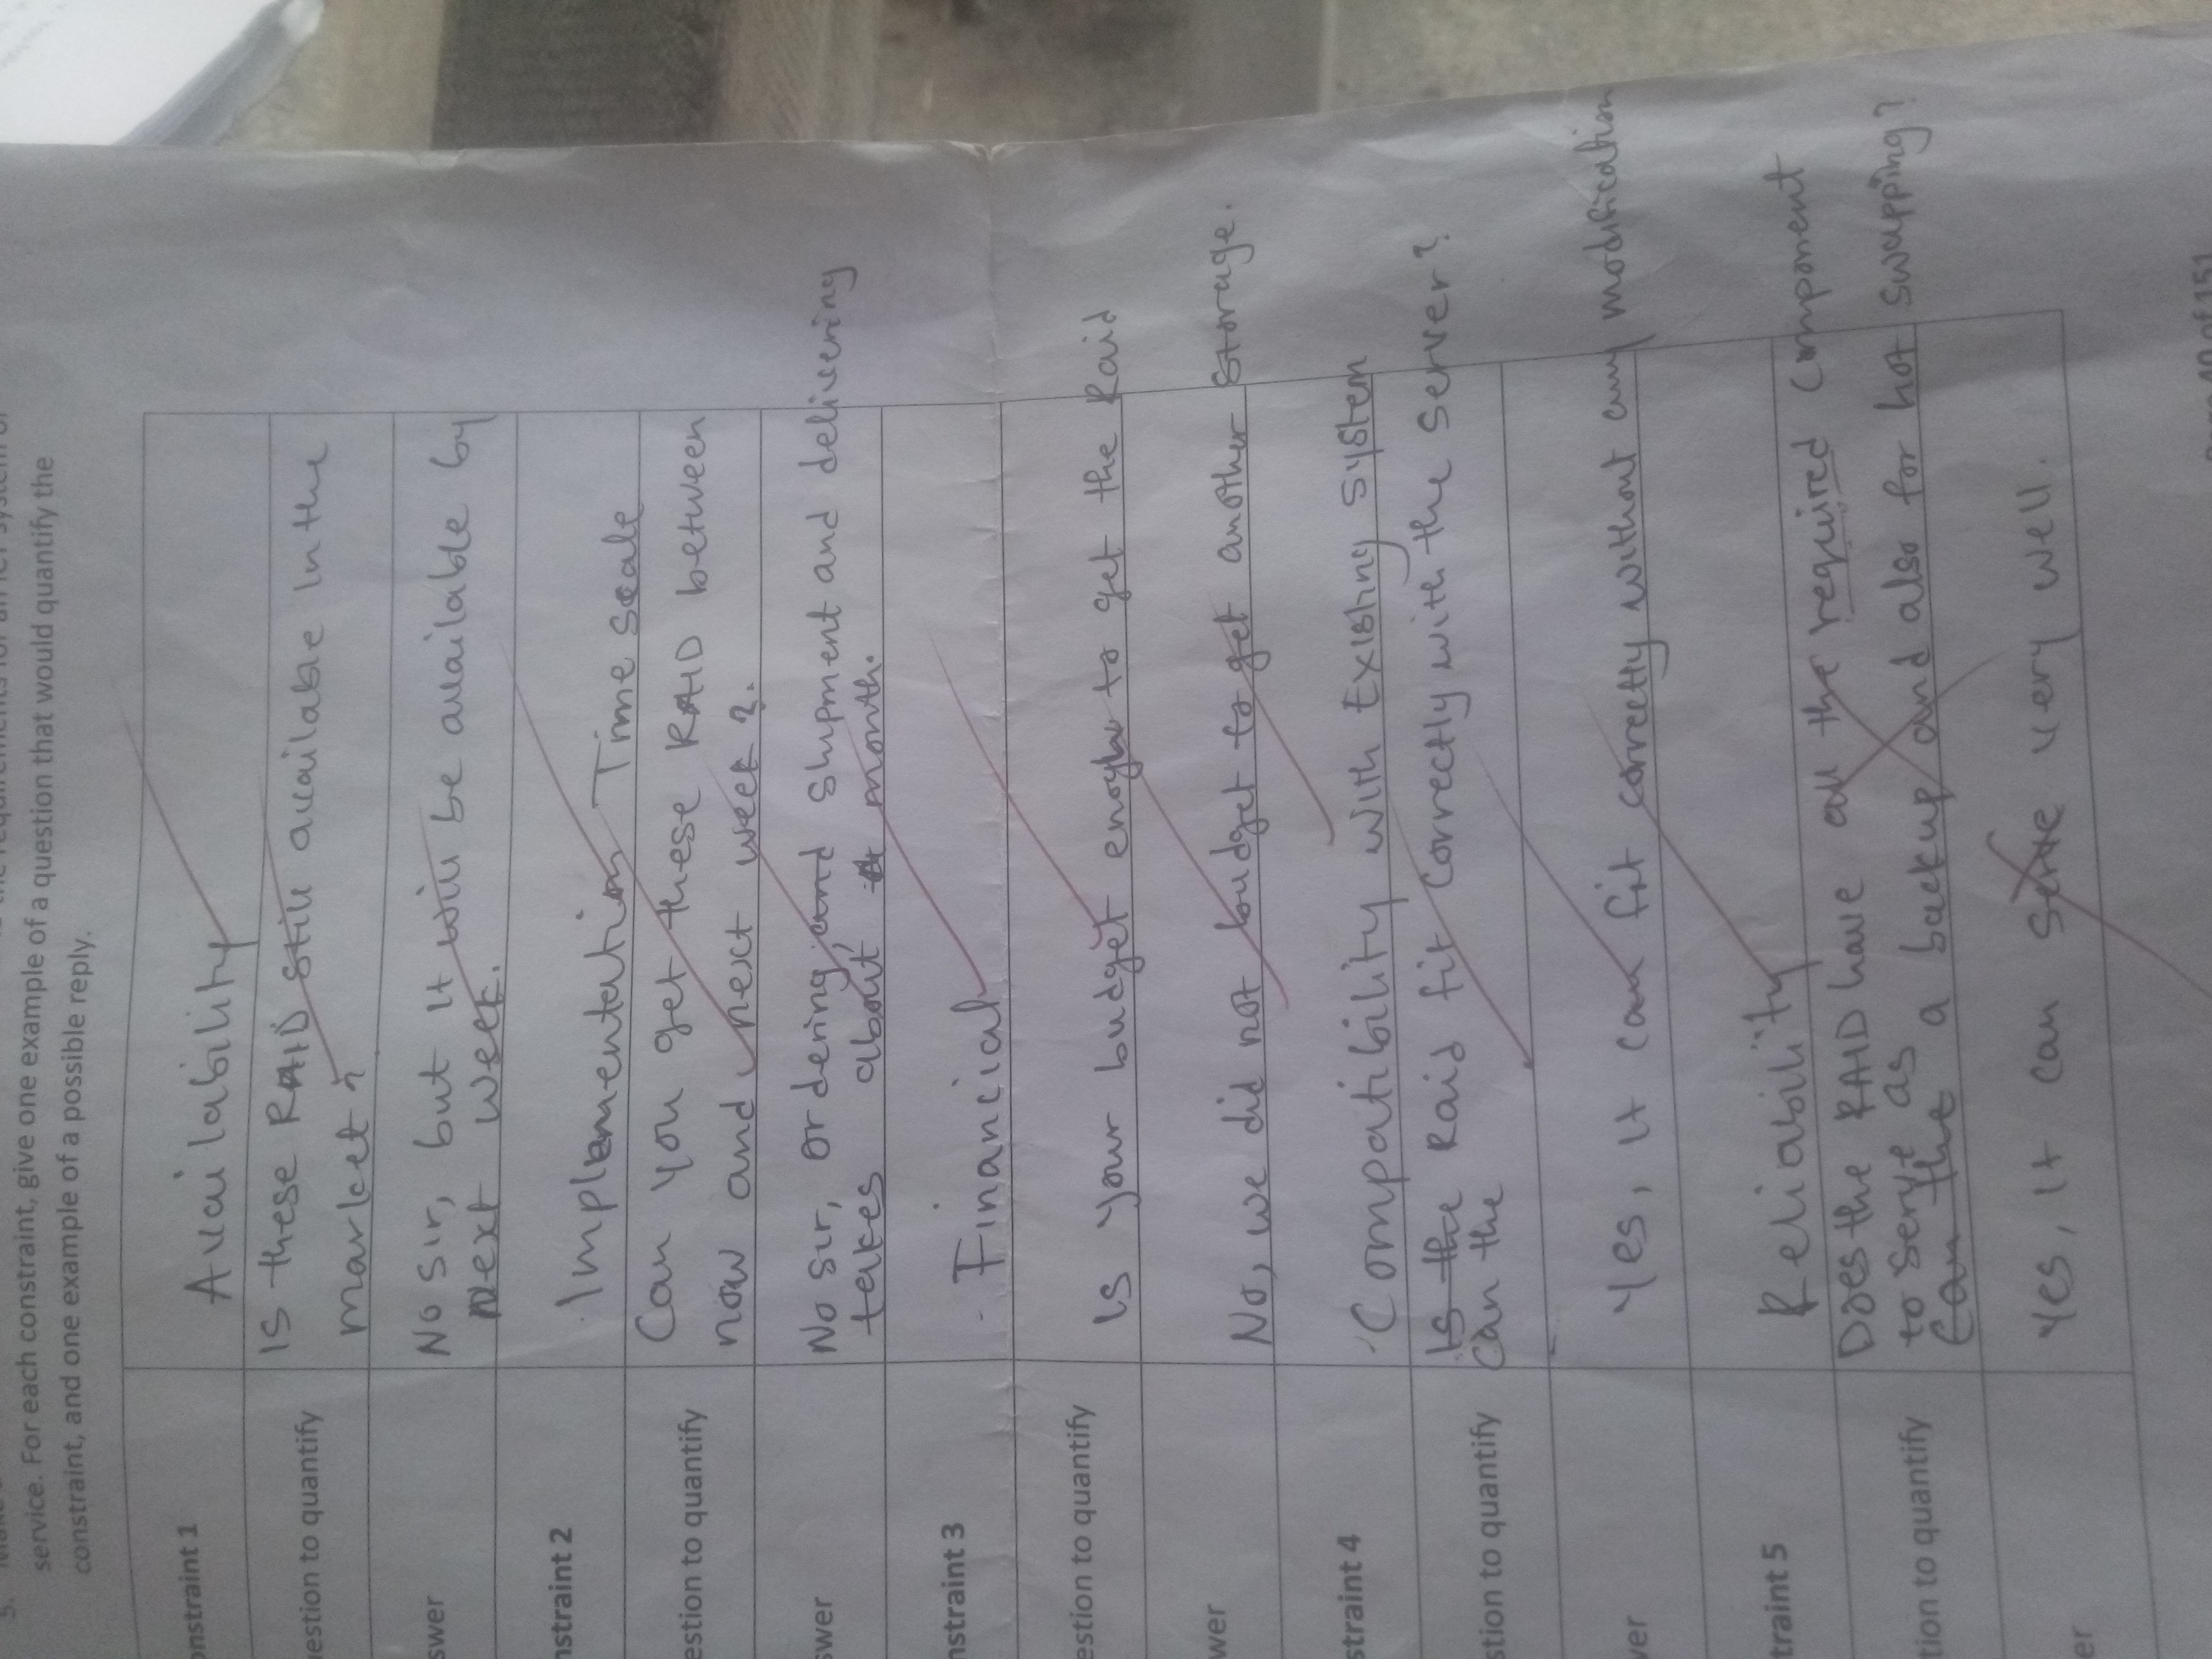 5.
service. For each constraint, give one example of a question that would quantify the
constraint, and one example of a possible reply.
onstraint 1
Availability
uestion to quantify
Is these RAID still available in the
market?
swer
No sir, but it will be available by
next week.
nstraint 2
Implementation Time scale
estion to quantify
Can you get these RAID between
now and next week?
swer
No sir, ordering and shipment and delivering
takes about a month.
nstraint 3
Financial
estion to quantify
Is your budget enough to get the Raid
wer
No, we did not budget to get another storage.
straint 4
Compatibility with Existing system
stion to quantify
Is the
Can the Raid fit correctly with the server?
ver
Yes, it can fit correctly without any modification
traint 5
Reliability
tion to quantify
Does the RAID have all the required component
to serve as a backup and also for hot swapping?
Can the
er
Yes, it can serve very well.
of 151